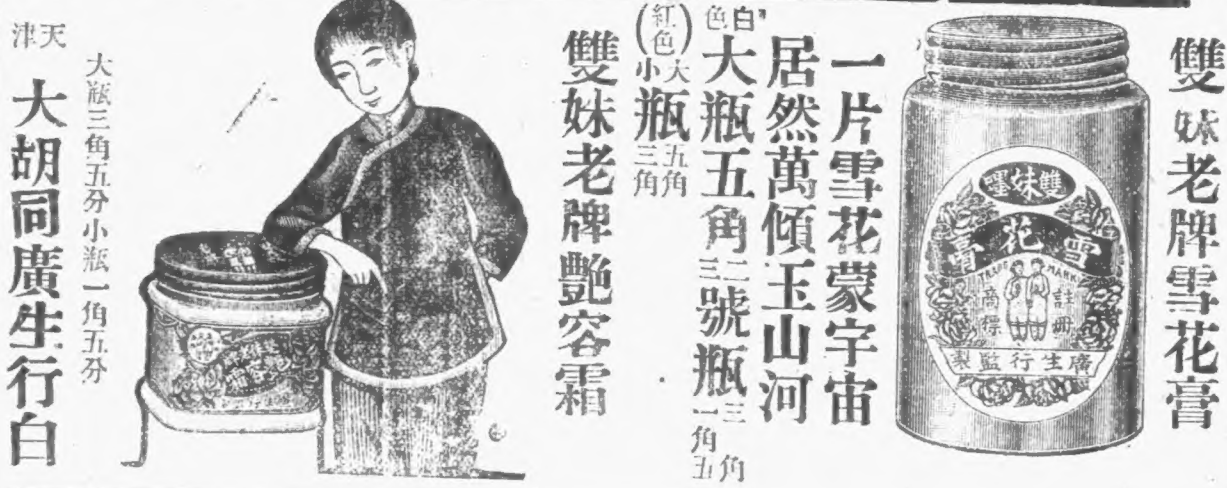 雙妹老牌雪花膏
雙妹嚜
雪花膏
TRADE MARK
註冊
商標
廣生行監製
一片雪花蒙宇宙
居然萬傾玉山河
白色大瓶五角二三號瓶三角一角五
(紅色)大小瓶五角三角
雙妹老牌艷容霜
大瓶三角五分小瓶一角五分
天津大胡同廣生行白